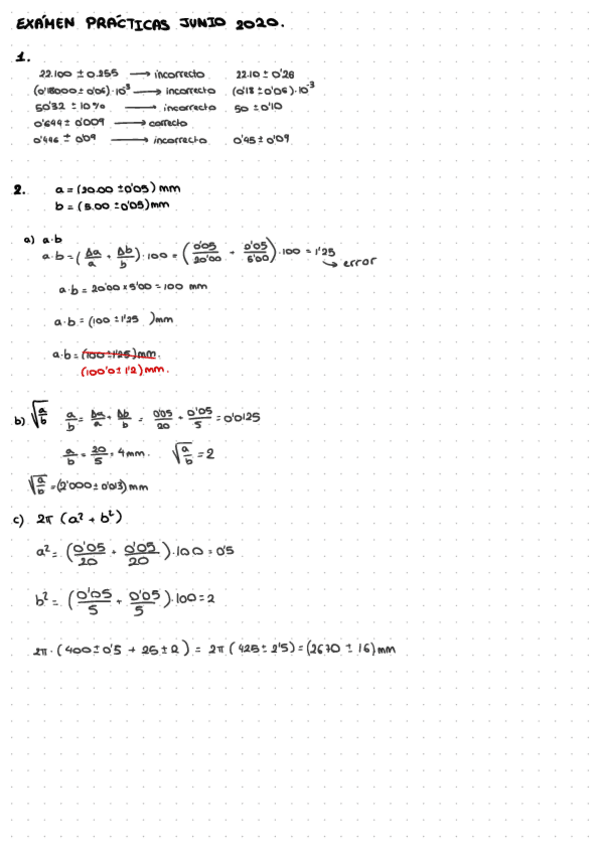 EXÁMEN PRÁCTICAS JUNIO 2020.
1.
22.100 ± 0.255 → incorrecto 22.10 ± 0'26
(0'18000 ± 0'06)·10³ → incorrecto (0'18 ± 0'06)·10⁻³
50'32 ± 10% → incorrecto 50 ± 0'10
0'644 ± 0'009 → correcto
0'446 ± 0'09 → incorrecto 0'45 ± 0'09
2. a = (20.00 ± 0'05) mm
b = (5.00 ± 0'05) mm
a) a·b
a·b = (Δa/a + Δb/b)·100 = (0'05/20'00 + 0'05/5'00)·100 = 1'25
→ error
a·b = 20'00 x 5'00 = 100 mm
a·b = (100 ± 1'25 )mm
a·b = (100 ± 1'25) mm.
(100'0 ± 1'2) mm.
b) √a/b a/b = Δa/a + Δb/b = 0'05/20 + 0'05/5 = 0'0125
a/b = 20/5 = 4 mm. √a/b = 2
√a/b = (2'000 ± 0'013) mm
c) 2π (a² + b²)
a² = (0'05/20 + 0'05/20)·100 = 0'5
b² = (0'05/5 + 0'05/5)·100 = 2
2π·(400 ± 0'5 + 25 ± 2) = 2π (425 ± 2'5) = (2670 ± 16) mm